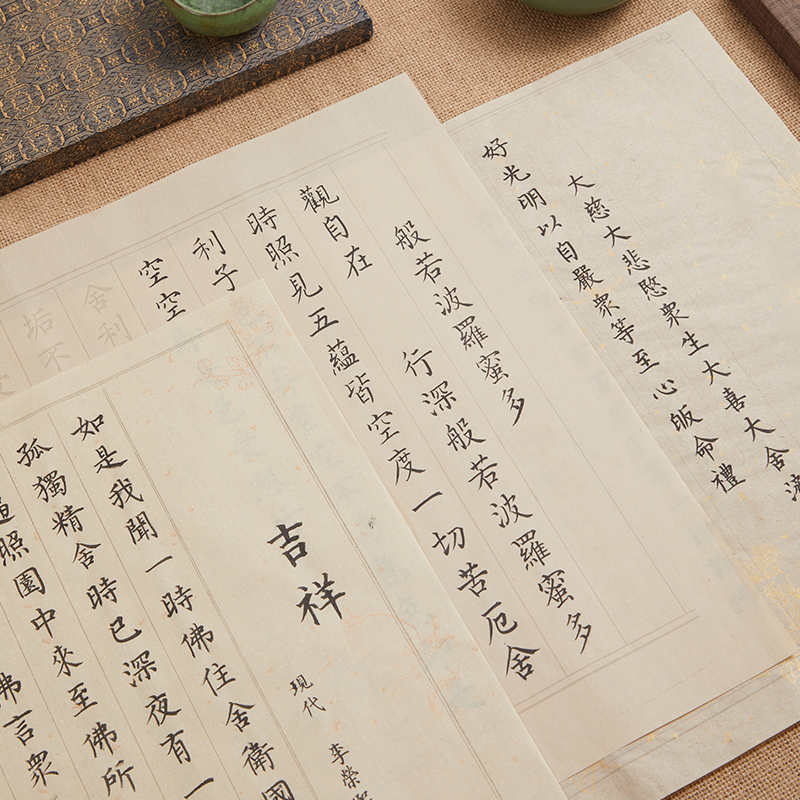 大慈大悲愍衆生大喜大舍濟
好光明以自嚴衆等至心皈命禮
般若波羅蜜多
觀自在 行深般若波羅蜜多
時照見五蘊皆空度一切苦厄舍
利子
空空
舍利
垢不
吉祥
現代 李榮
如是我聞一時佛住舍衛國
孤獨精舍時已深夜有一
照園中來至佛所
佛言衆